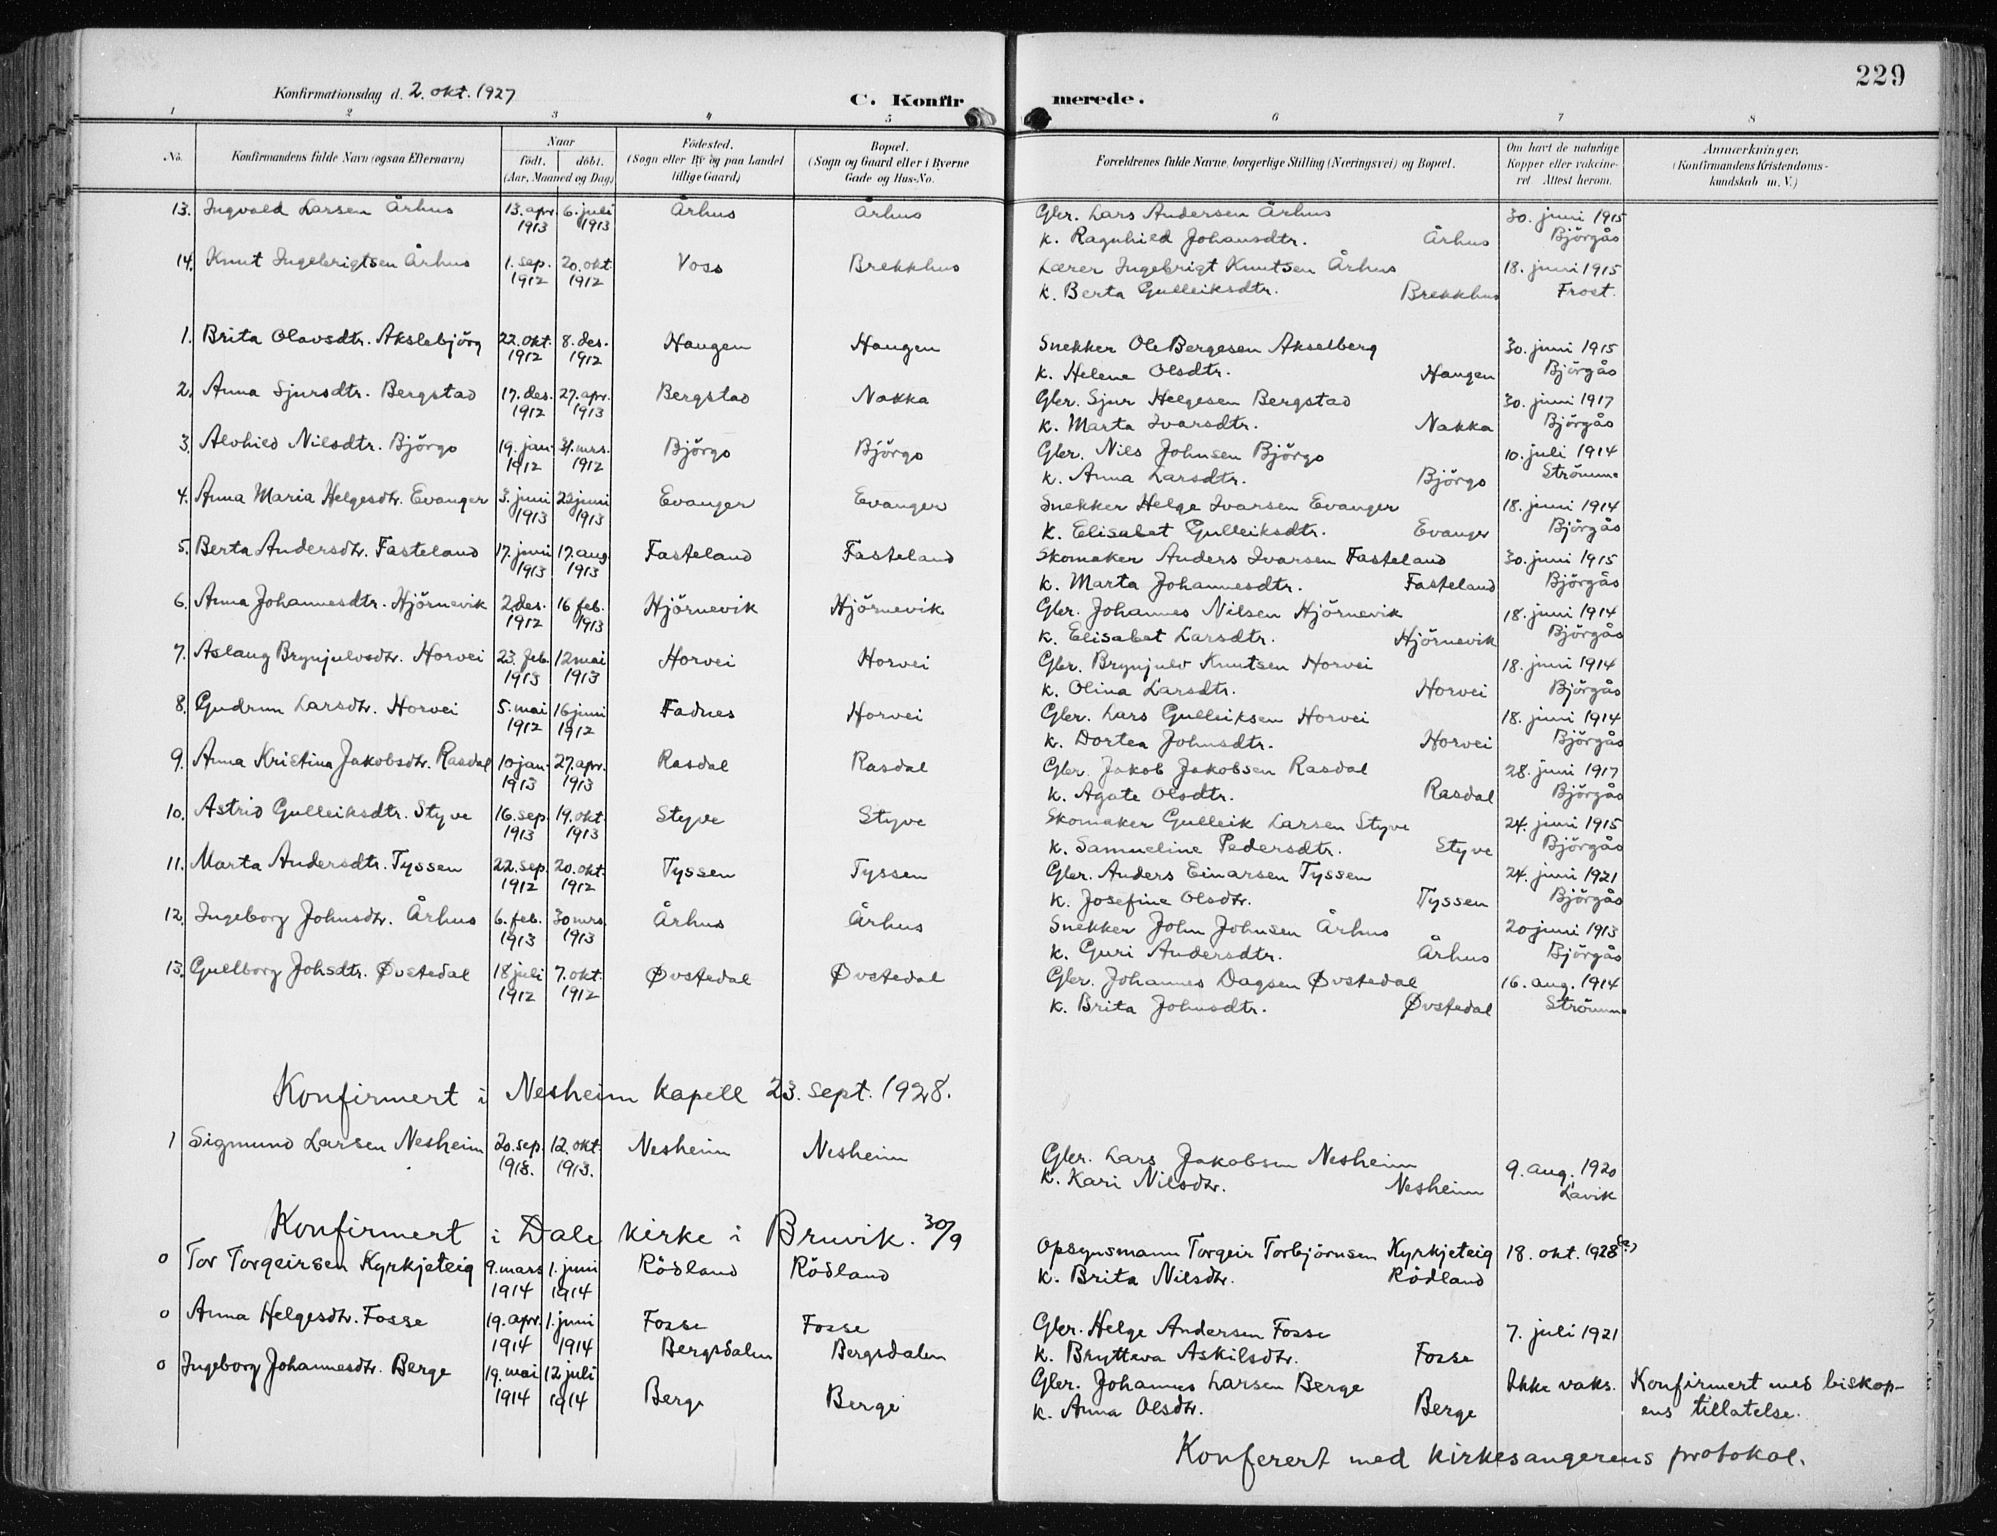 229
Konfirmationsdag d. 2. okt. 1927
C. Konfirmerede.
1 2 3 4 5 6 7 8
No. Konfirmandens fulde Navn (ogsaa Efternavn) Naar født. døbt. (Aar, Maaned og Dag) Fødested. (Sogn eller By og paa Landet tillige Gaard) Bopæl. (Sogn og Gaard eller i Byerne Gade og Hus-No. Forældrenes fulde Navne, borgerlige Stilling (Næringsvei) og Bopæl. Om havt de naturlige Kopper eller vaccineret. Attest herom. Anmærkninger. (Konfirmandens Kristendomskundskab m. V.)
13. Ingvald Larsen Århus 13. apr. 6. juli Århus Århus Gbr. Lars Andersen Århus 30. juni 1915
1913 1913 k. Ragnhild Johansdtr. Århus Björgås
14. Knut Ingebrigtsen Århus 1. sep. 20. okt. Voss Brekkhus Lærer Ingebrigt Knutsen Århus 18. juni 1915
1912 1912 k. Berta Gulleiksdtr. Brekkhus Frost.
1. Brita Olavsdtr. Akslebjörg 22. okt. 8. des. Haugen Haugen Snekker Ole Bergesen Akselberg 30. juni 1915
1912 1912 k. Helene Olsdtr. Haugen Björgås
2. Anna Sjursdtr. Bergstad 17. des. 27. apr. Bergstad Nakka Gbr. Sjur Helgesen Bergstad 30. juni 1917
1912 1913 k. Marta Ivarsdtr. Nakka Björgås
3. Alvhild Nilsdtr. Björgo 19. jan. 31. mrs. Björgo Björgo Gbr. Nils Johnsen Björgo 10. juli 1914
1912 1912 k. Anna Larsdtr. Björgo Strömme
4. Anna Maria Helgesdtr. Evanger 3. juni 22 juni Evanger Evanger Snekker Helge Ivarsen Evanger 18. juni 1914
1913 1913 k. Elisabet Gulleiksdtr. Evanger Björgås
5. Berta Andersdtr. Fasteland 17. juni 17. aug Fasteland Fasteland Skomaker Anders Ivarsen Fasteland 30. juni 1915
1913 1913 k. Marta Johannesdtr. Fasteland Björgås
6. Anna Johannesdtr. Hjörnevik 2. des. 16 feb. Hjörnevik Hjörnevik Gbr. Johannes Nilsen Hjörnevik 18. juni 1914
1912 1913 k. Elisabet Larsdtr. Hjörnevik Björgås
7. Aslaug Brynjulvsdtr. Horvei 23. feb. 12 mai Horvei Horvei Gbr. Brynjulv Knutsen Horvei 18. juni 1914
1913 1913 k. Olina Larsdtr. Horvei Björgås
8. Gudrun Larsdtr. Horvei 5. mai 16 juni Fadnes Horvei Gbr. Lars Gulleiksen Horvei 18. juni 1914
1912 1912 k. Dortea Johnsdtr. Horvei Björgås
9. Anna Kristina Jakobsdtr. Rasdal 10 jan. 27. apr. Rasdal Rasdal Gbr. Jakob Jakobsen Rasdal 28. juni 1917
1913 1913 k. Agate Olsdtr. Rasdal Björgås
10. Astrid Gulleiksdtr. Styve 16. sep. 19. okt. Styve Styve Skomaker Gulleik Larsen Styve 24. juni 1915
1913 1913 k. Samueline Pedersdtr. Styve Björgås
11. Marta Andersdtr. Tyssen 22. sep. 20. okt. Tyssen Tyssen Gbr. Anders Einarsen Tyssen 24. juni 1921
1912 1912 k. Josefine Olsdtr. Tyssen Björgås
12. Ingeborg Johnsdtr. Århus 6. feb. 30 mrs. Århus Århus Snekker John Johnsen Århus 20 juni 1913
1913 1913 k. Guri Andersdtr. Århus Björgås
13. Gullborg Johsdtr. Øvstedal 18 juli 7. okt. Øvstedal Øvstedal Gbr. Johannes Dagsen Øvstedal 16. aug. 1914
1912 1912 k. Brita Johnsdtr. Øvstedal Strömme
Konfirmert i Nesheim kapell 23. sept. 1928.
1 Sigmund Larsen Nesheim 20. sep. 12. okt. Nesheim Nesheim Gbr. Lars Jakobsen Nesheim 9. aug. 1920
1913. 1913. k. Kari Nilsdtr. Nesheim Lavik
Konfirmert i Dale kirke i Bruvik. 30/9
0 Tor Torgeirsen Kyrkjeteig 9. mars 1. juni Rödland Rödland Opsynsmann Torgeir Torbjørnsen Kyrkjeteig 18. okt. 1928 (?)
1914 1914 k. Brita Nilsdtr. Rödland
0 Anna Helgesdtr. Fosse 19. apr. 1. juni Fosse Fosse Gbr. Helge Andersen Fosse 7. juli 1921
1914 1914 Bergsdalen Bergsdalen k. Brytteva Askilsdtr. Fosse
0 Ingeborg Johannesdtr. Berge 19. mai 12 juli Berge Berge Gbr. Johannes Larsen Berge Ikke vaks. Konfirmert med biskop-
1914 1914 k. Anna Olsdtr. Berge ens tillatelse.
Konferert med kirkesangerens protokol.